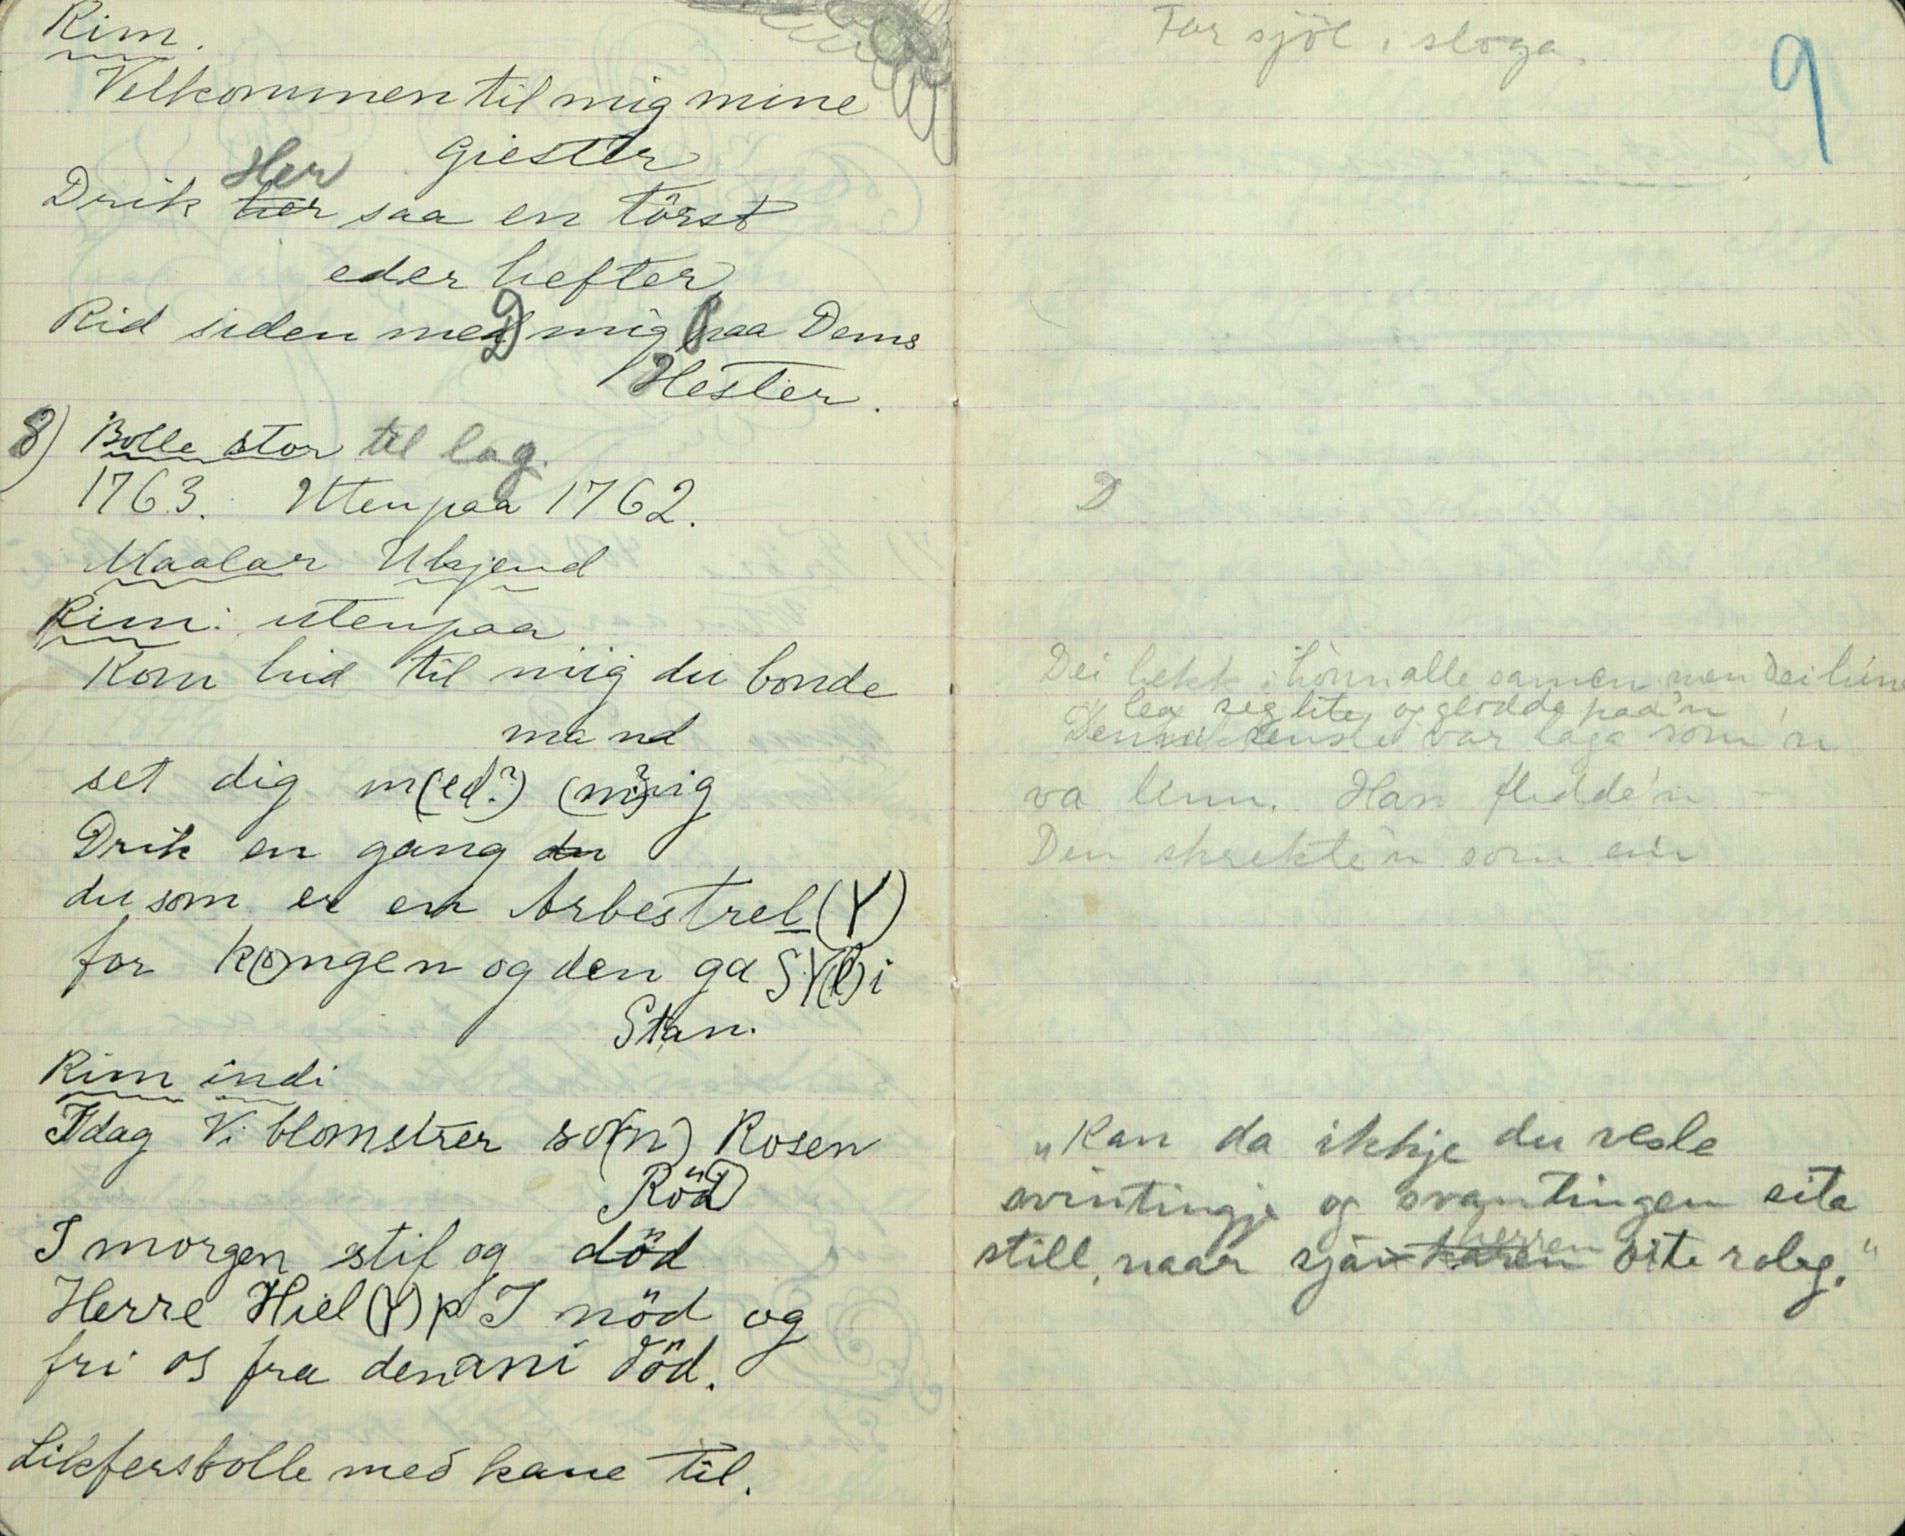 Rim.
Velkommen til mig mine
Giester
Her
Drik her saa en törst
eder hefter
Rid siden meD mig Paa Dems
Hester.
8) Bolle stor til lag.
1763. Utenpaa 1762.
Maalar Ukjend
Rim: utenpaa
Kom hid til miig du bonde
mand
set dig m(ed?) (mi?)ig
Drik en gang du
du som er en Arbestrel (Y)
for k(o)ngen og den ga SY(l)i
Stan.
Rim indi
Idag Vi blomstrer so(m) Rosen
RöD
I morgen stif og död
Herre Hiel(Y)p I nöd og
fri os fra den ani död.
Likfersbolle med kane til.
Far sjöl i sloga.
9
D
Dei hekk i hònn alle samen men Dei
seg lite, og glodde paa'n
var laga som'n
va linn. Han flidde'n
Den skrekte'n som ein
"Kan da ikkje du vesle
svintingje og svantingen sita
herren
still, naar sjöv karen site roleg."